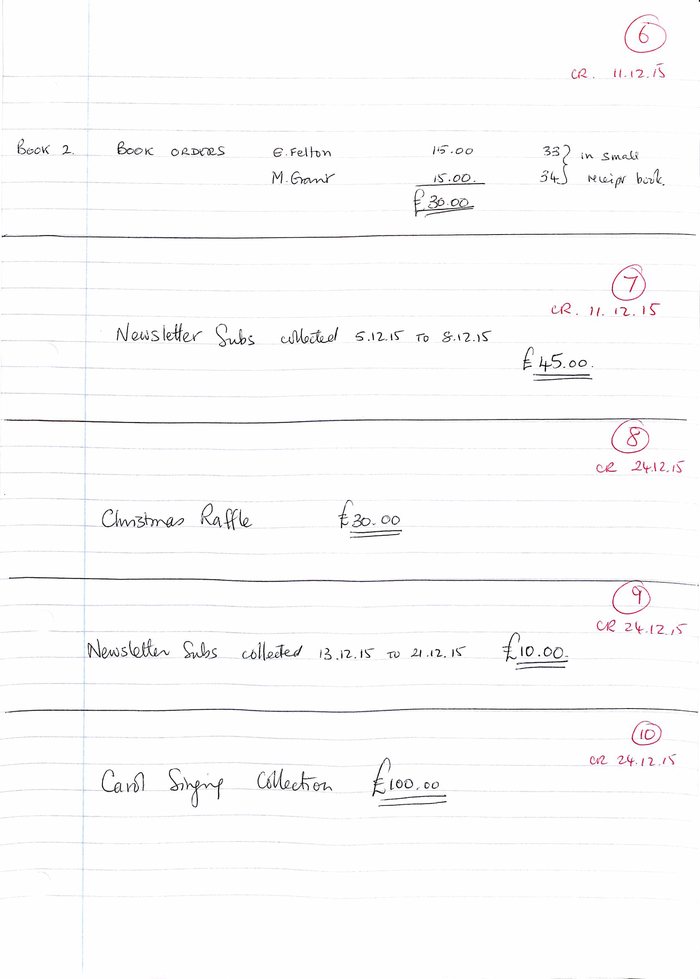 6
CR. 11.12.15
BOOK 2. BOOK ORDERS E.Felton 15.00 33 } in small
M.Grant 15.00. 34 } receipt book.
£30.00
7
CR. 11.12.15
Newsletter Subs collected 5.12.15 TO 8.12.15
£45.00.
8
CR 24.12.15
Christmas Raffle £30.00
9
CR 24.12.15
Newsletter Subs collected 13.12.15 TO 21.12.15 £10.00.
10
CR 24.12.15
Carol Singing Collection £100.00